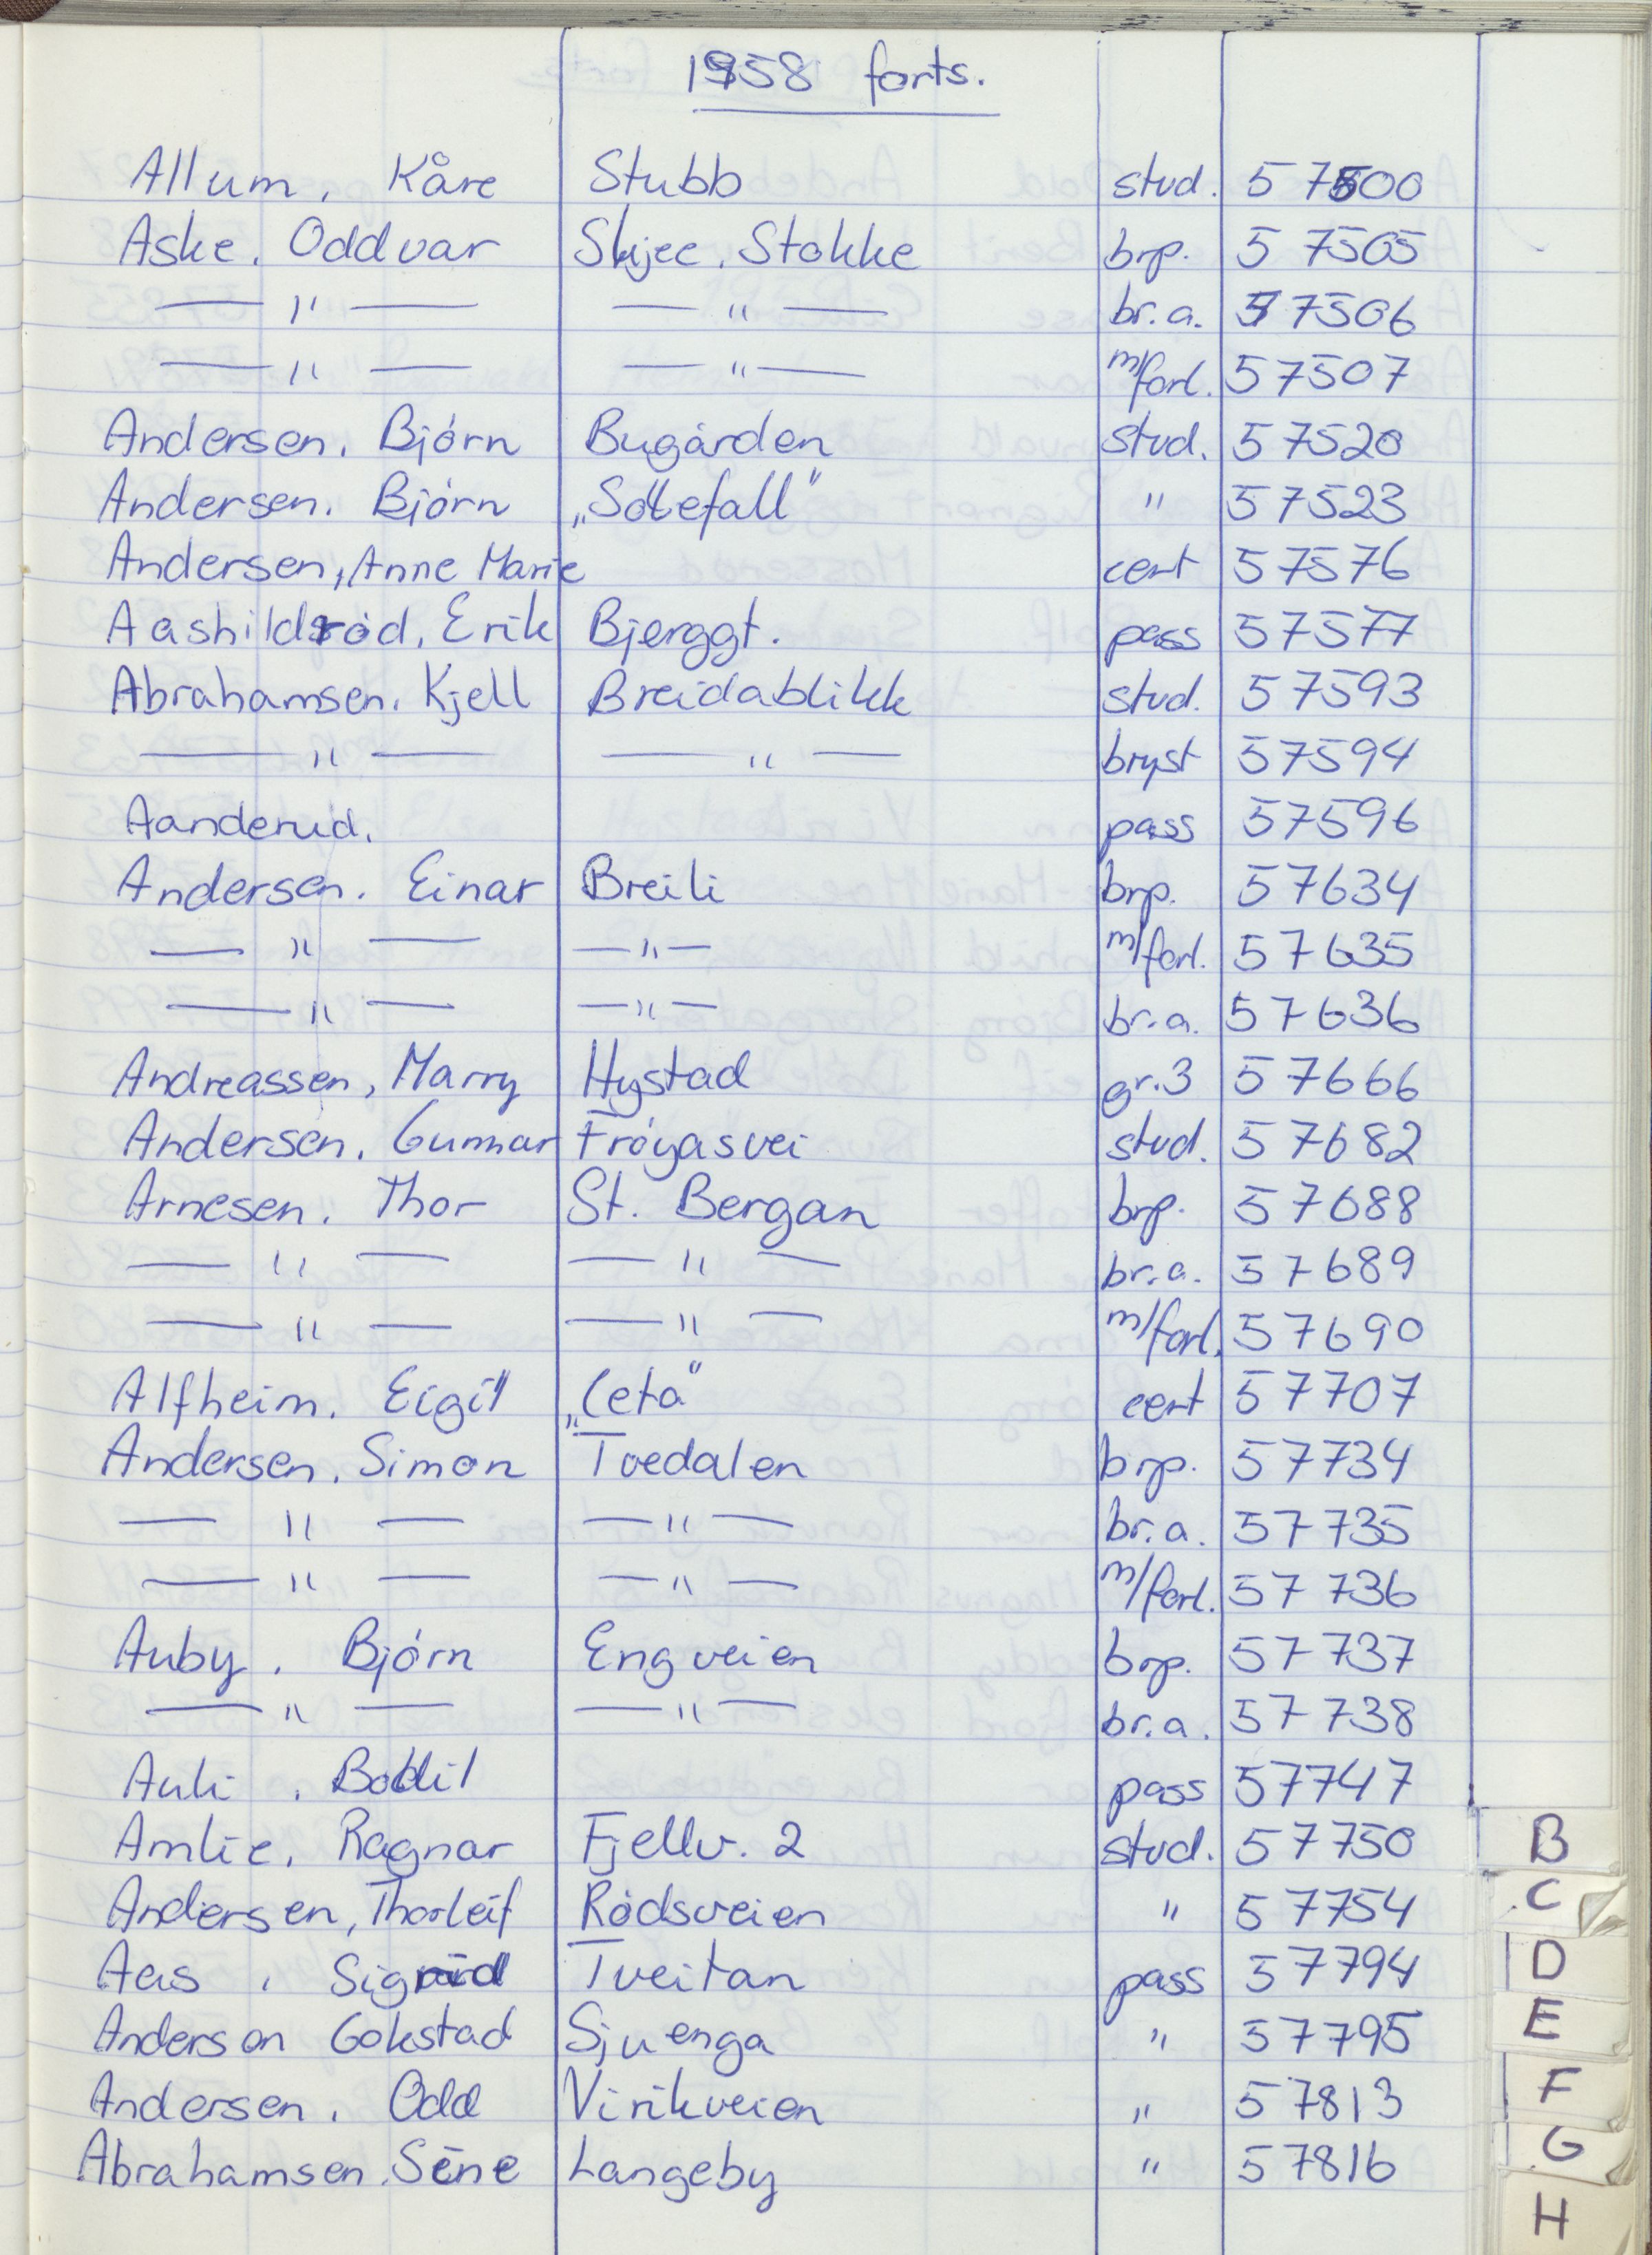 1958 forts.
Allum, Kåre Stubb stud. 57500
Aske, Oddvar Skjee, Stokke brp. 57505
— " — — " — br.a. 57506
— " — — " — m/forl. 57507
Andersen, Bjørn Bugården stud. 57520
Andersen, Bjørn „Solefall" " 57523
Andersen, Anne Marie cert 57576
Aashildrød, Erik Bjerggt. pass 57577
Abrahamsen, Kjell Breidablikk stud. 57593
— " — — " — bryst 57594
Aanderud, pass 57596
Andersen, Einar Breili brp. 57634
— " — — " — m/forl. 57635
— " — — " — br.a. 57636
Andreassen, Marry Hystad gr.3 57666
Andersen, Gunnar Frøyasvei stud. 57682
Arnesen, Thor St. Bergan brp. 57688
— " — — " — br.a. 57689
— " — — " — m/forl. 57690
Alfheim, Eigil „Ceta" cert 57707
Andersen, Simon Tvedalen brp. 57734
— " — — " — br.a. 57735
— " — — " — m/forl. 57736
Auby, Bjørn Engveien brp. 57737
— " — — " — br.a. 57738
Auli, Bodil pass 57747
Amlie, Ragnar Fjellv. 2 stud. 57750
Andersen, Thorleif Rødsveien " 57754
Aas, Sigrid Tveitan pass 57794
Anderson Gokstad Sjuenga " 57795
Andersen, Odd Virikveien " 57813
Abrahamsen, Signe Langeby " 57816
B
C
D
E
F
G
H